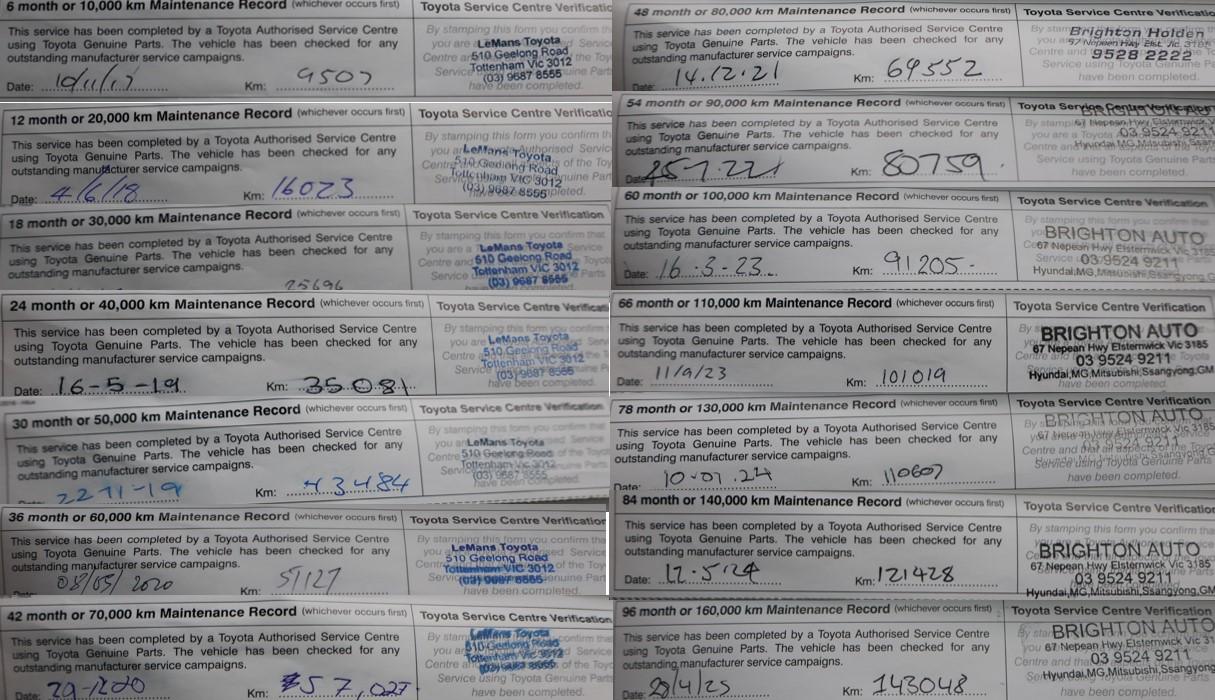 6 month or 10,000 km Maintenance Record (whichever occurs first)
Toyota Service Centre Verificatio
This service has been completed by a Toyota Authorised Service Centre
using Toyota Genuine Parts. The vehicle has been checked for any
outstanding manufacturer service campaigns.
Date: 10/11/17 Km: 9507
By stamping this form you confirm th
you are
Centre
Service
have been completed.
LeMans Toyota
510 Geelong Road
Tottenham Vic 3012
(03) 9687 8555
12 month or 20,000 km Maintenance Record (whichever occurs first)
Toyota Service Centre Verificatio
This service has been completed by a Toyota Authorised Service Centre
using Toyota Genuine Parts. The vehicle has been checked for any
outstanding manufacturer service campaigns.
Date: 4/6/18 Km: 16023
By stamping this form you confirm th
LeMans Toyota
510 Geelong Road
Tottenham VIC 3012
(03) 9687 8555
18 month or 30,000 km Maintenance Record (whichever occurs first)
Toyota Service Centre Verification
This service has been completed by a Toyota Authorised Service Centre
using Toyota Genuine Parts. The vehicle has been checked for any
outstanding manufacturer service campaigns.
25696
By stamping this form you confirm that
LeMans Toyota
510 Geelong Road
Tottenham VIC 3012
(03) 9687 8555
24 month or 40,000 km Maintenance Record (whichever occurs first)
Toyota Service Centre Verification
This service has been completed by a Toyota Authorised Service Centre
using Toyota Genuine Parts. The vehicle has been checked for any
outstanding manufacturer service campaigns.
Date: 16-5-19 Km: 35081
By stamping this form you confirm
LeMans Toyota
510 Geelong Road
Tottenham VIC 3012
(03) 9687 8555
have been completed.
30 month or 50,000 km Maintenance Record (whichever occurs first)
Toyota Service Centre Verification
This service has been completed by a Toyota Authorised Service Centre
using Toyota Genuine Parts. The vehicle has been checked for any
outstanding manufacturer service campaigns.
22-11-19 Km: 43484
By stamping this form you confirm
LeMans Toyota
510 Geelong Road
Tottenham Vic 3012
(03) 9687 8555
have been completed.
36 month or 60,000 km Maintenance Record (whichever occurs first)
Toyota Service Centre Verification
This service has been completed by a Toyota Authorised Service Centre
using Toyota Genuine Parts. The vehicle has been checked for any
outstanding manufacturer service campaigns.
Date: 08/05/2020 Km: 51127
By stamping this form you confirm
LeMans Toyota
510 Geelong Road
Tottenham VIC 3012
(03) 9687 8555
have been completed.
42 month or 70,000 km Maintenance Record (whichever occurs first)
Toyota Service Centre Verification
This service has been completed by a Toyota Authorised Service Centre
using Toyota Genuine Parts. The vehicle has been checked for any
outstanding manufacturer service campaigns.
Date: Km: 57,027
LeMans Toyota
510 Geelong Road
Tottenham Vic 3012
have been completed.
48 month or 80,000 km Maintenance Record (whichever occurs first)
Toyota Service Centre Verification
This service has been completed by a Toyota Authorised Service Centre
using Toyota Genuine Parts. The vehicle has been checked for any
outstanding manufacturer service campaigns.
Date: 14.12.21 Km: 69552
Brighton Holden
9528 2222
have been completed.
54 month or 90,000 km Maintenance Record (whichever occurs first)
Toyota Service Centre Verification
This service has been completed by a Toyota Authorised Service Centre
using Toyota Genuine Parts. The vehicle has been checked for any
outstanding manufacturer service campaigns.
Date: 25.7.22 Km: 80759
67 Nepean Hwy Elsternwick V
03 9524 9211
Service using Toyota Genuine Parts
have been completed.
60 month or 100,000 km Maintenance Record (whichever occurs first)
Toyota Service Centre Verification
This service has been completed by a Toyota Authorised Service Centre
using Toyota Genuine Parts. The vehicle has been checked for any
outstanding manufacturer service campaigns.
Date: 16-3-23 Km: 91205-
BRIGHTON AUTO
67 Nepean Hwy Elsternwick Vic 3185
03 9524 9211
Hyundai,MG,Mitsubishi,Ssangyong
66 month or 110,000 km Maintenance Record (whichever occurs first)
Toyota Service Centre Verification
This service has been completed by a Toyota Authorised Service Centre
using Toyota Genuine Parts. The vehicle has been checked for any
outstanding manufacturer service campaigns.
Date: 11/9/23 Km: 101019
BRIGHTON AUTO
67 Nepean Hwy Elsternwick Vic 3185
03 9524 9211
Hyundai,MG,Mitsubishi,Ssangyong,GM
have been completed.
78 month or 130,000 km Maintenance Record (whichever occurs first)
Toyota Service Centre Verification
This service has been completed by a Toyota Authorised Service Centre
using Toyota Genuine Parts. The vehicle has been checked for any
outstanding manufacturer service campaigns.
Date: 10-01.24 Km: 110607
BRIGHTON AUTO
67 Nepean Hwy Elsternwick Vic 3185
03 9524 9211
Service using Toyota Genuine Parts
have been completed.
84 month or 140,000 km Maintenance Record (whichever occurs first)
Toyota Service Centre Verificatio
This service has been completed by a Toyota Authorised Service Centre
using Toyota Genuine Parts. The vehicle has been checked for any
outstanding manufacturer service campaigns.
Date: 17.5.24 Km: 121428
By stamping this form you confirm tha
BRIGHTON AUTO
67 Nepean Hwy Elsternwick Vic 3185
03 9524 9211
Hyundai,MG,Mitsubishi,Ssangyong,GM
96 month or 160,000 km Maintenance Record (whichever occurs first)
Toyota Service Centre Verification
This service has been completed by a Toyota Authorised Service Centre
using Toyota Genuine Parts. The vehicle has been checked for any
outstanding manufacturer service campaigns.
Date: 28/4/25 Km: 143048
BRIGHTON AUTO
67 Nepean Hwy Elsternwick Vic 31
03 9524 9211
Hyundai,MG,Mitsubishi,Ssangyong
have been completed.